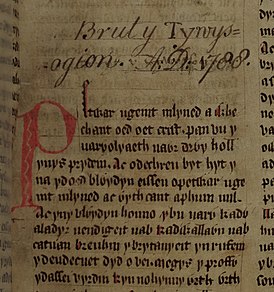 Brut y Tywys-
ogion. A.D. 1788.
Petwar ugeint mlyned a whe
chant oed oet crist pan vu y
uarvolyaeth uawr drwy holl
ynys prydein. Ac odechreu byt hyt y
na ydoed blwydyn eisseu opetwar uge
int mlyned ac wyth cant aphum mil.
Ac yny blwydyn honno y bu uarw kadw
aladyr uendigeit uab kadwallawn uab
catuan brenhin y brytanyeit yn rufein
y deudecuet dyd o vei megys y proffw
ydassei vyrdin kyn nohynny wrth wrth